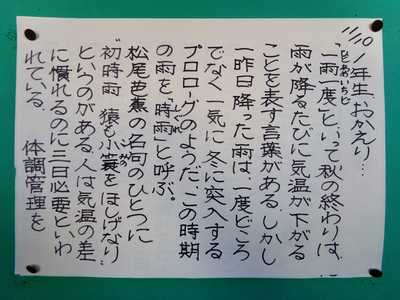 1年生、おかえり…
「一雨一度」といって秋の終わりは、
ひとあめいちど
雨が降るたびに気温が下がる
ことを表す言葉がある。しかし
一昨日降った雨は、一度どころ
でなく一気に冬に突入する
プロローグのようだ。この時期
の雨を「時雨」と呼ぶ。
しぐれ
松尾芭蕉の名句のひとつに
"初時雨 猿も小簑をほしげなり"
というのがある。人は気温の差
に慣れるのに三日必要といわ
れている。 体調管理を